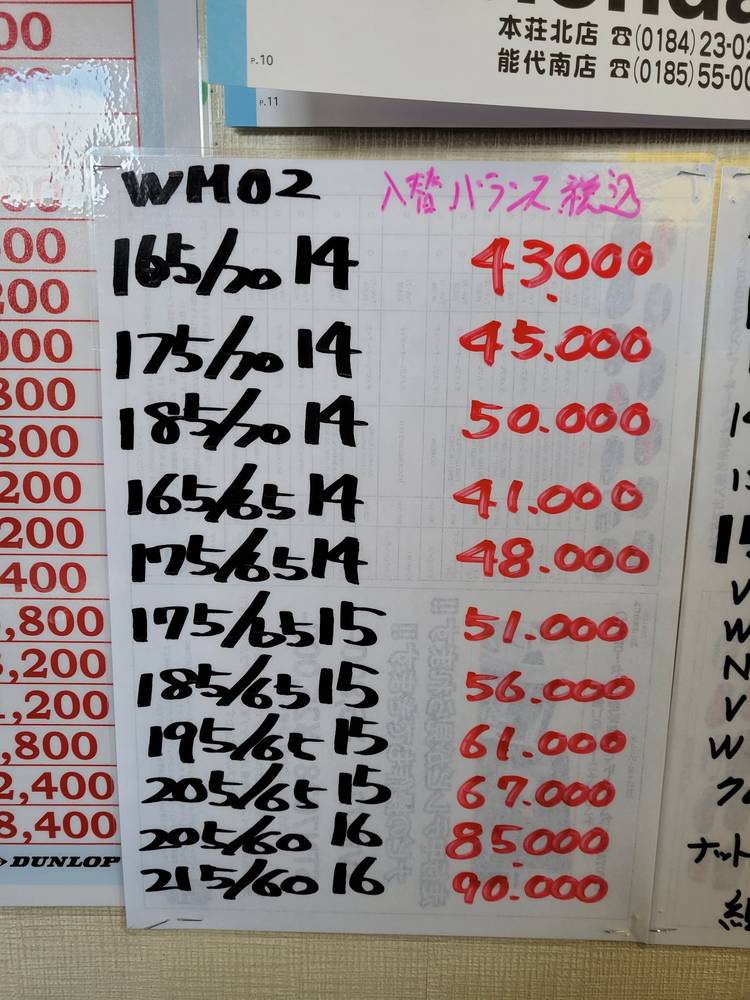 P.10
本荘北店 ☎(0184)23-02
能代南店 ☎(0185)55-00
P.11
WM02 入替 バランス 税込
165/70 14 43.000
175/70 14 45.000
185/70 14 50.000
165/65 14 41.000
175/65 14 48.000
175/65 15 51.000
185/65 15 56.000
195/65 15 61.000
205/65 15 67.000
205/60 16 85.000
215/60 16 90.000
00
00
200
000
800
800
200
200
400
,800
,200
,200
,800
2,400
8,400
DUNLOP
ナット